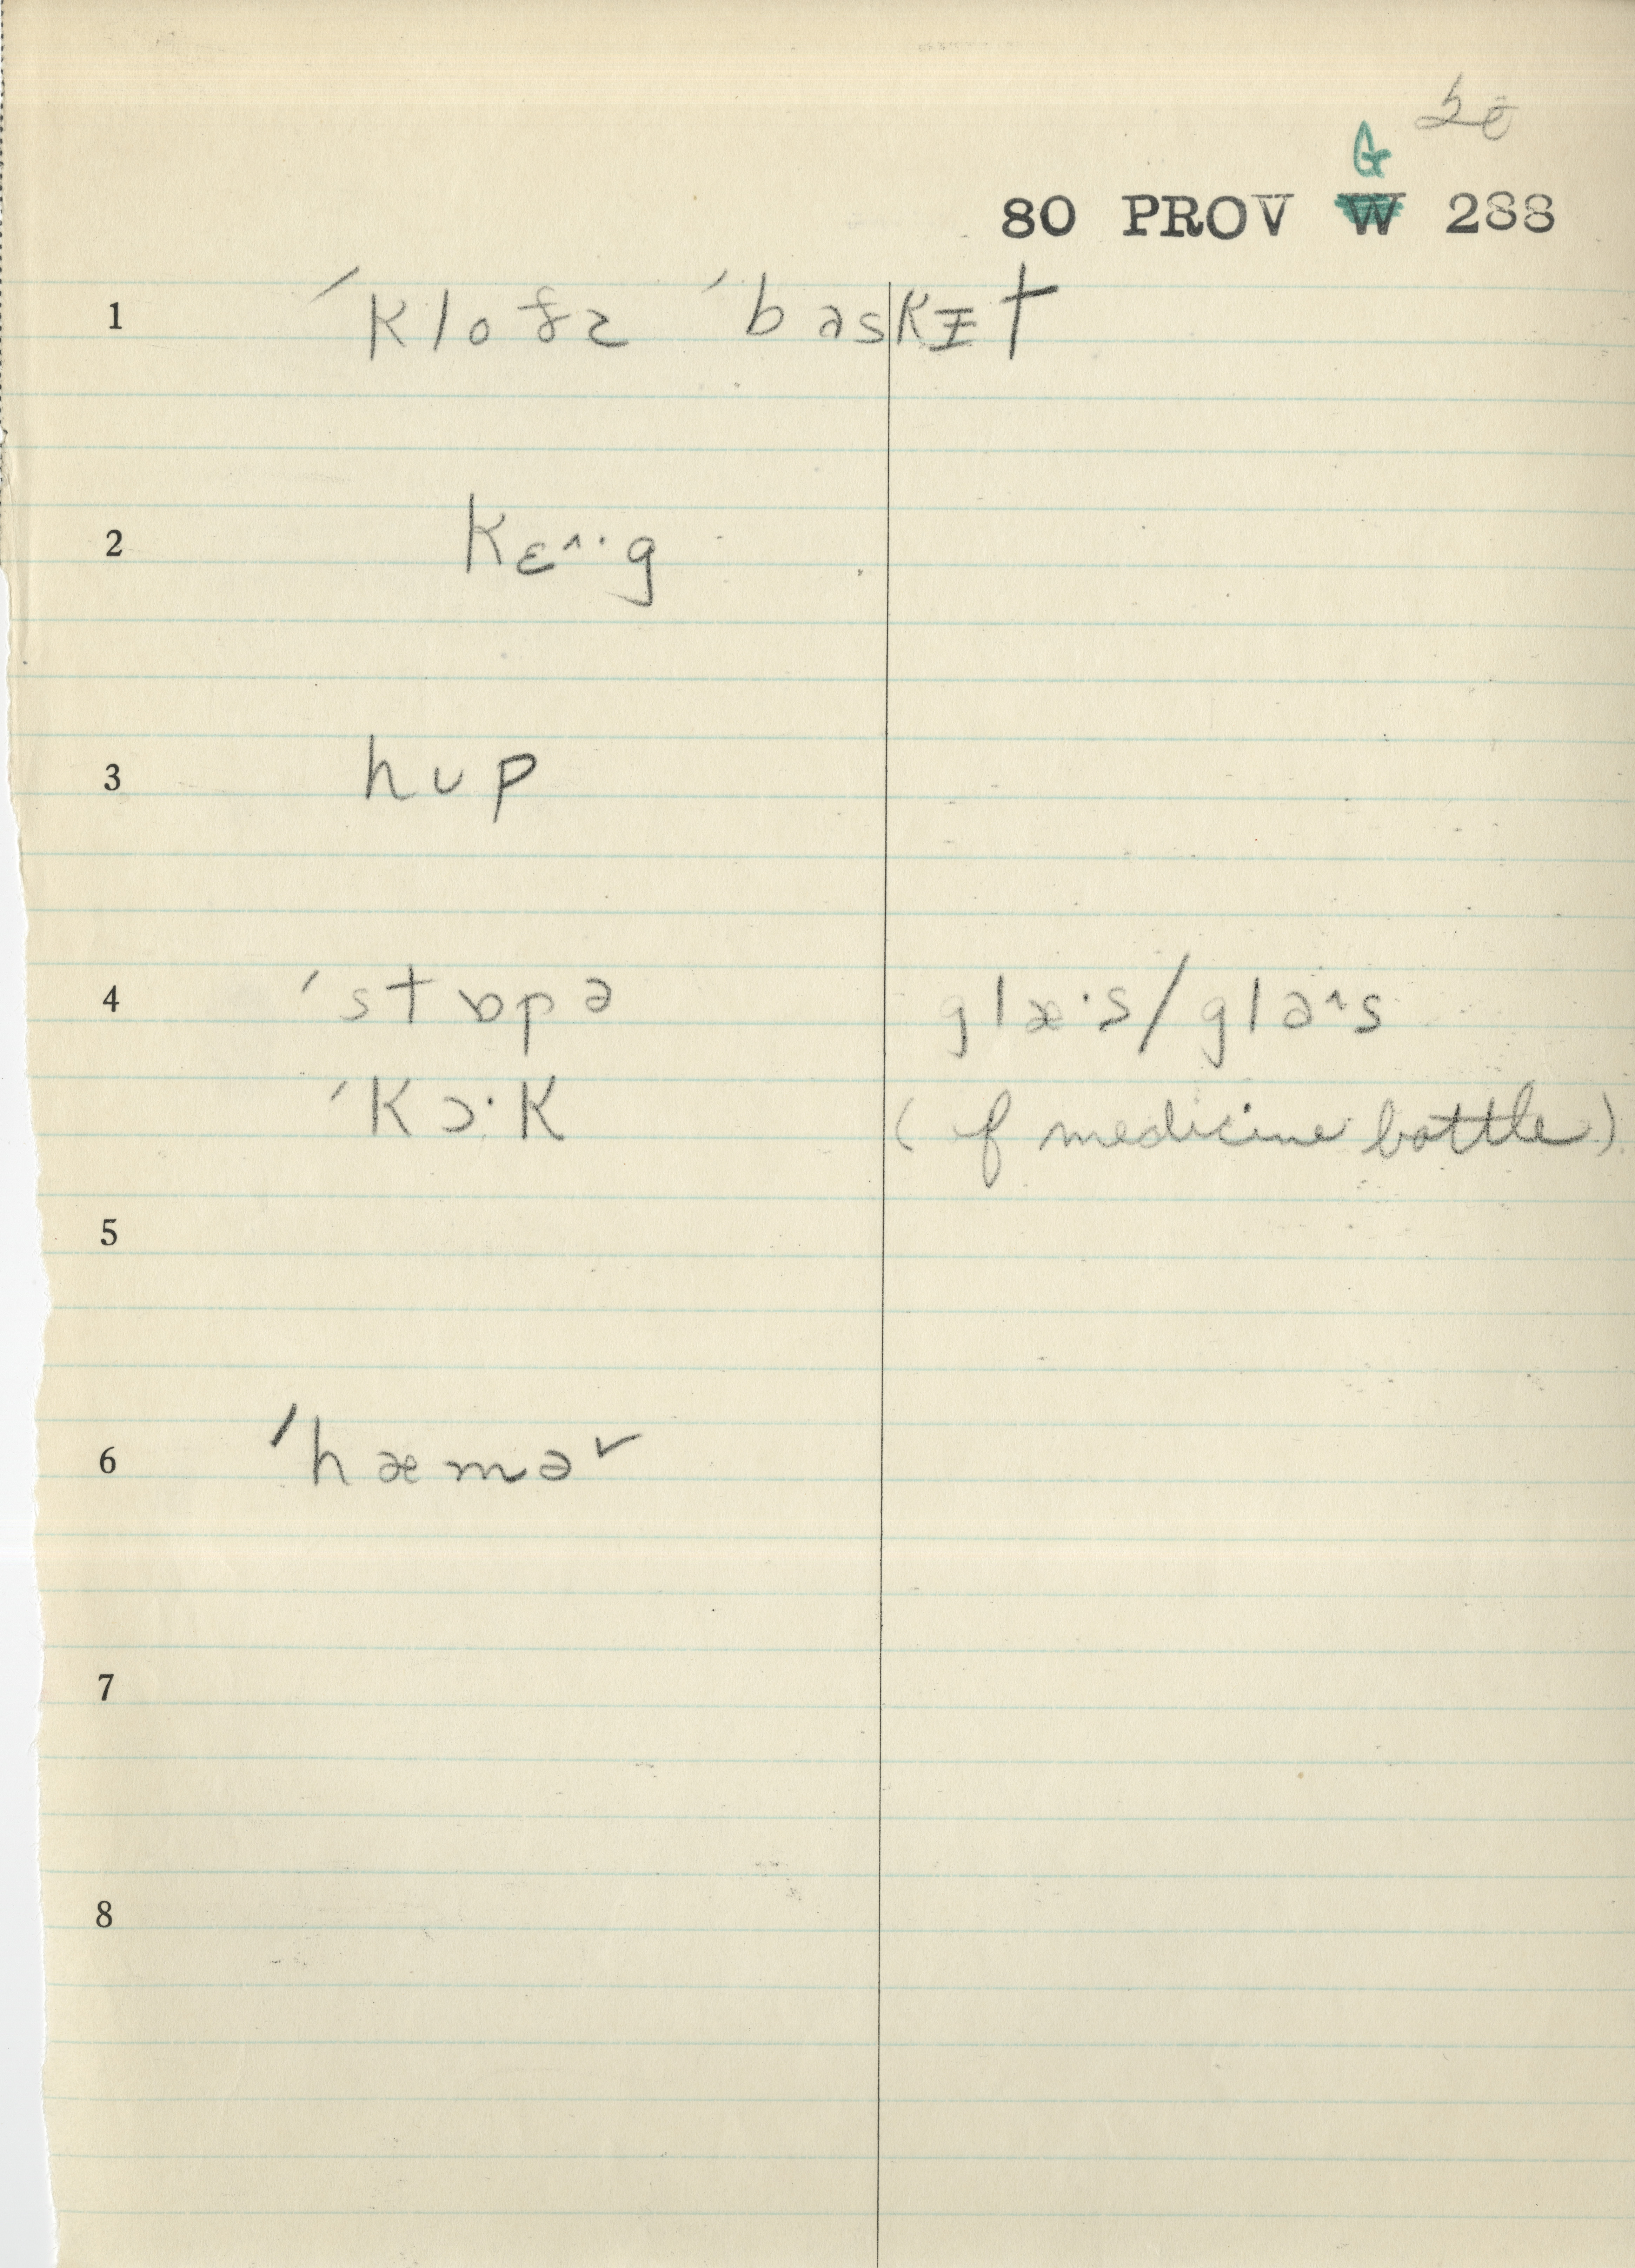 G
80 PROV W 288
1 ´kloðz ´baskɪt
2 kɛ^·g
3 hup
4 ´stɒpə glæ·s/glə^s
´kɔ·k (of medicine bottle)
5
6 ´hæmə˅
7
8